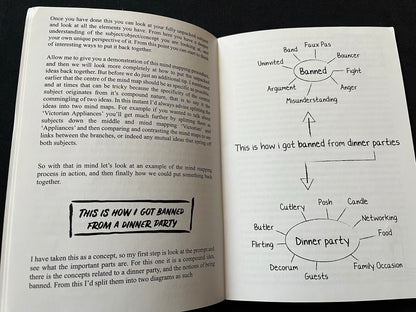 Once you have done this you can look at your fully unpacked subject
and look at all the elements you have. From here you have a deeper
understanding of the subject/object/concept you are looking at and
your own unique perspective of it. From this point you can look to
of interesting ways to put it back together.
Allow me to give you a demonstration of this mind mapping procedure,
and then we will look more completely at how to put the unpacked
ideas back together. But before we do just an additional tip. I mentioned
earlier that the centre of the mind map should be as specific as possible,
and at times that can be tricky because the specificity of the central
subject originates from it's compound nature, that is to say it is a
commingling of two ideas. In this instant I'd always advise splitting the
ideas into two mind maps. For example if you wanted to talk about
'Victorian Appliances' you'll get much further by splitting them as
subjects down the middle and mind mapping 'Victorian', and
'Appliances' and then comparing and contrasting the mind maps to see
links between the branches, or indeed any mutual ideas that spring off
both subjects.
So with that in mind let's look at an example of the mind mapping
process in action, and then finally how we could put something back
together.
THIS IS HOW I GOT BANNED
FROM A DINNER PARTY
I have taken this as a concept, so my first step is look at the prompt and
see what the important parts are. For this one it is a compound idea,
there is the concepts related to a dinner party, and the notions of being
banned. From this I'd split them into two diagrams as such
Faux Pas
Band
Bouncer
Uninvited
Banned
Fight
Argument
Anger
Misunderstanding
This is how i got banned from dinner parties
Posh
Candle
Cutlery
Networking
Butler
Food
Flirting
Dinner party
Decorum
Family Occasion
Guests